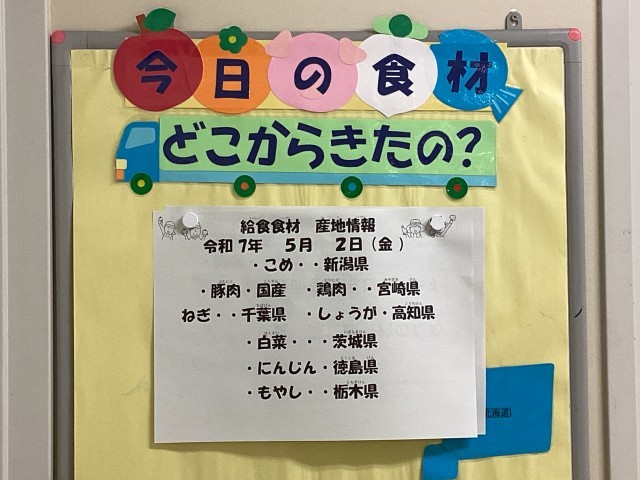 今日の食材
どこからきたの?
給食食材 産地情報
令和 7年 5月 2日(金)
・こめ・・新潟県
・豚肉・国産 ・鶏肉・・宮崎県
ねぎ・・千葉県 ・しょうが・高知県
・白菜・・・茨城県
・にんじん・徳島県
・もやし・・栃木県
北海道